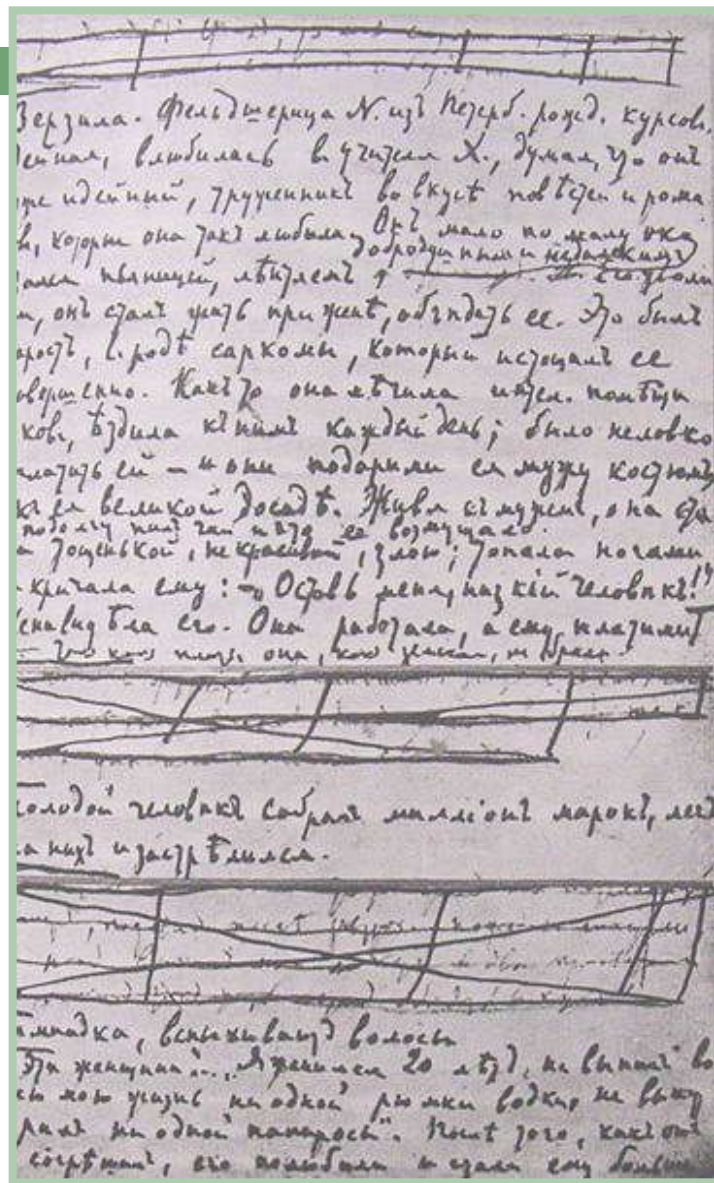 Верзила. Фельдшерица N. изъ Петерб. рожд. курсовъ,
дейная, влюбилась въ учителя X., думая, что онъ
же идейный, труженникъ во вкусѣ повѣстей и рома
въ, которые она такъ любила. Онъ мало по малу ока
добродушнымъ и недалекимъ
зался пьяницей, лѣнтяемъ его уволи
и, онъ сталъ жить при женѣ, объѣдать ее. Это былъ
аростъ, въ родѣ саркомы, который истощалъ ее
овершенно. Какъ то она лѣчила интел. помѣщи
ковъ, ѣздила къ нимъ каждый день; было неловко
латить ей – и они подарили ея мужу костюмъ
къ ея великой досадѣ. Живя съ мужемъ, она ста
подолгу пилъ чай и это ее возмущало.
а тощенькой, некрасивой, злою; топала ногами
кричала ему: – Оставь меня, низкій человѣкъ!
енавидѣла его. Она работала, а ему платили
она, не брала
олодой человѣкъ собралъ милліонъ марокъ, легъ
на нихъ и застрѣлился.
волосы
Эта женщина... Я женился 20 лѣтъ, не выпилъ во
сю мою жизнь ни одной рюмки водки, не выку
рилъ ни одной папиросы". Послѣ того, какъ онъ
согрѣшилъ, его полюбили и стали ему больше